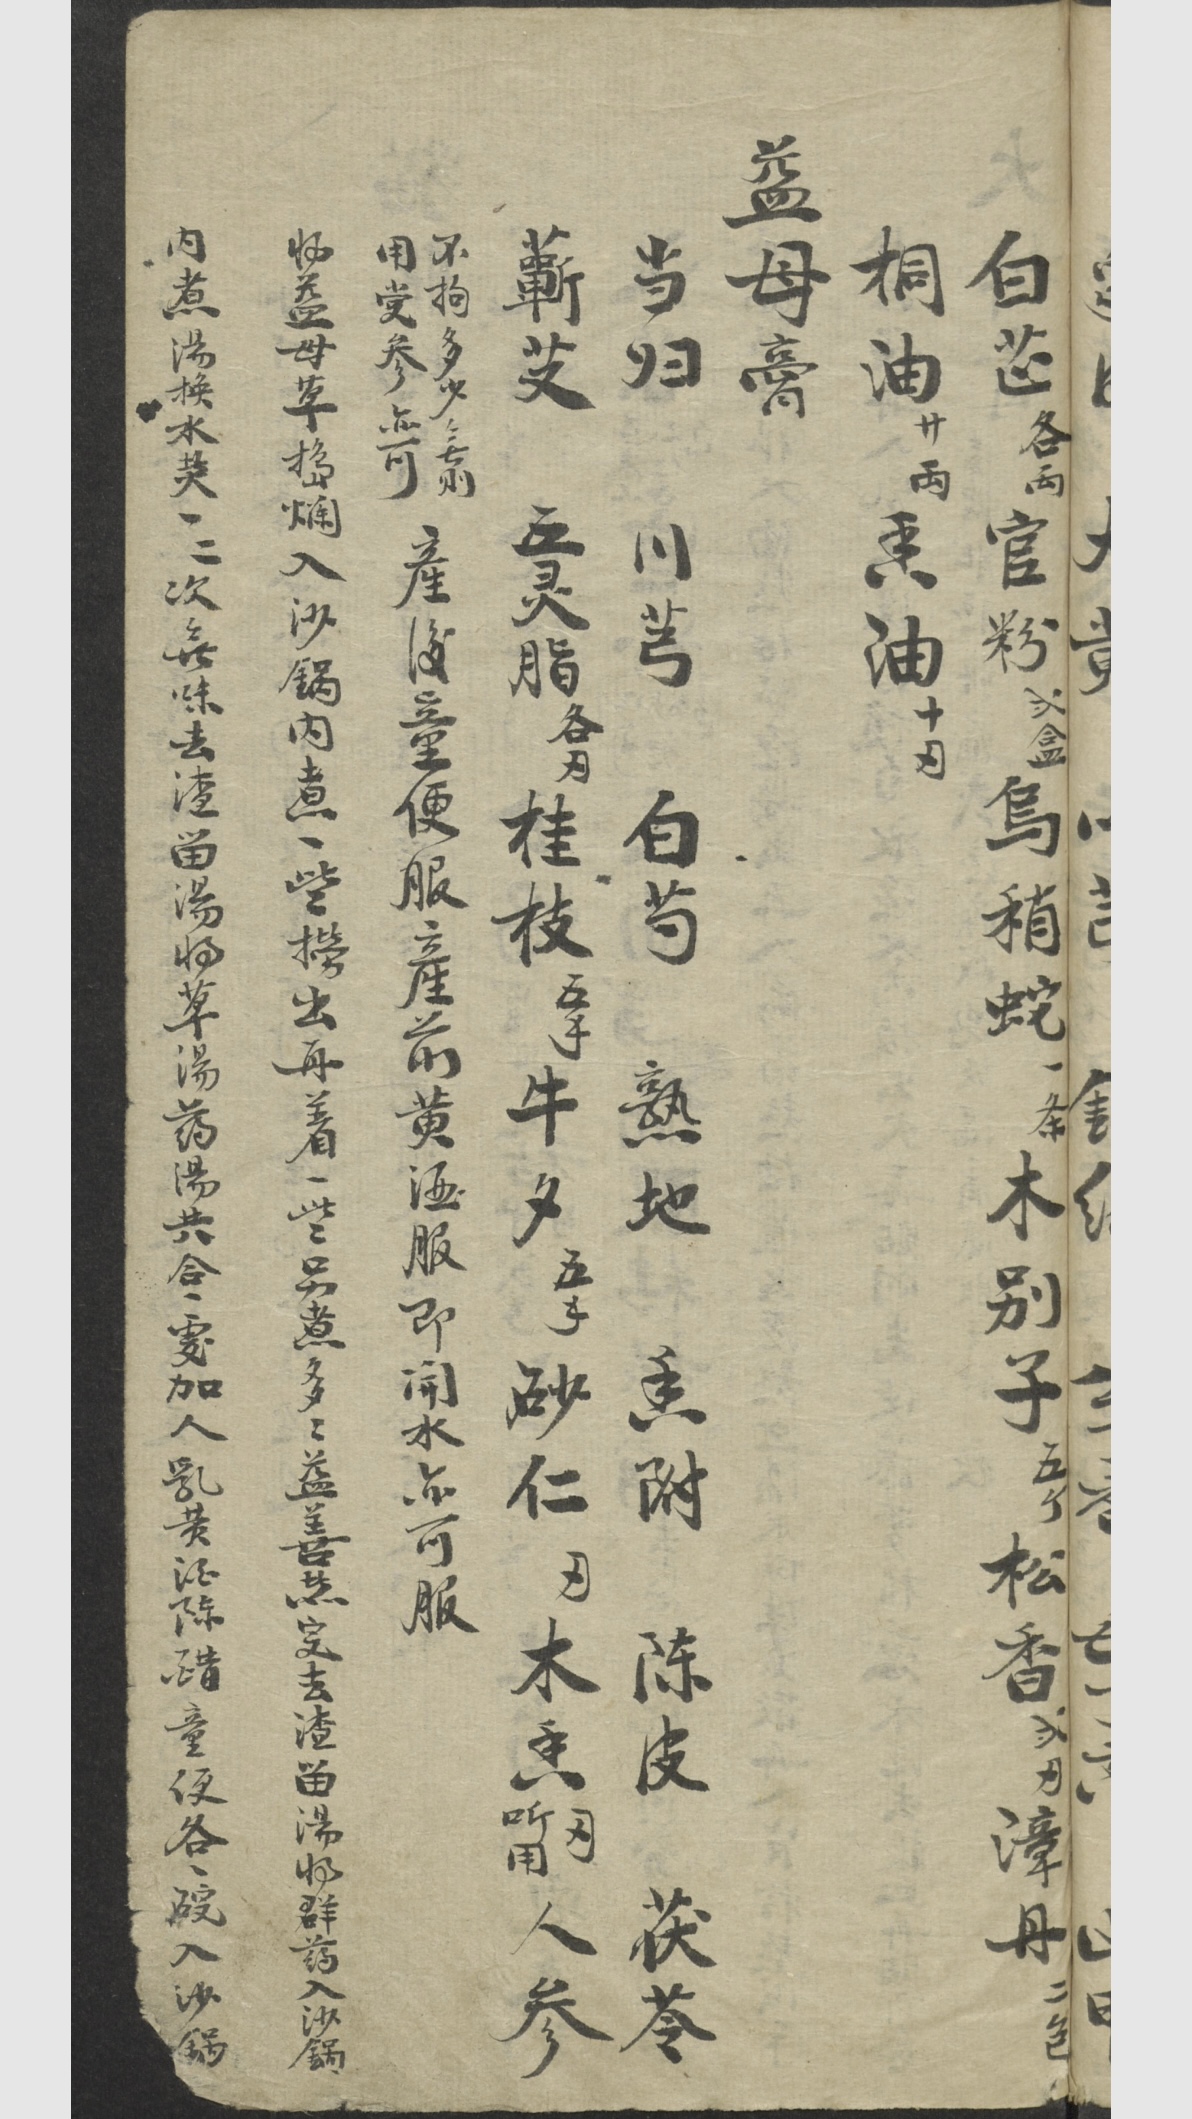 白芷各兩官粉弍盒烏稍蛇一条木别子五个松香弍刄漳丹二包
桐油廿兩香油十刄
益母膏
当归 川芎 白芍 熟地 香附 陈皮 茯苓
蘄艾 五灵脂各刄桂枝五个牛夕五个砂仁刄木香刄听用人参
不拘多少無則
用党参亦可
産後童便服産前黄酒服即開水亦可服
将益母草搗爛入沙鍋内煮一些撈出再着一些另煮多〻益善煎完去渣畄湯将群药入沙鍋
内煮湯換水煑一二次無味去渣畄湯将草湯药湯共合一處加人乳黄酒陈醋童便各一碗入沙鍋